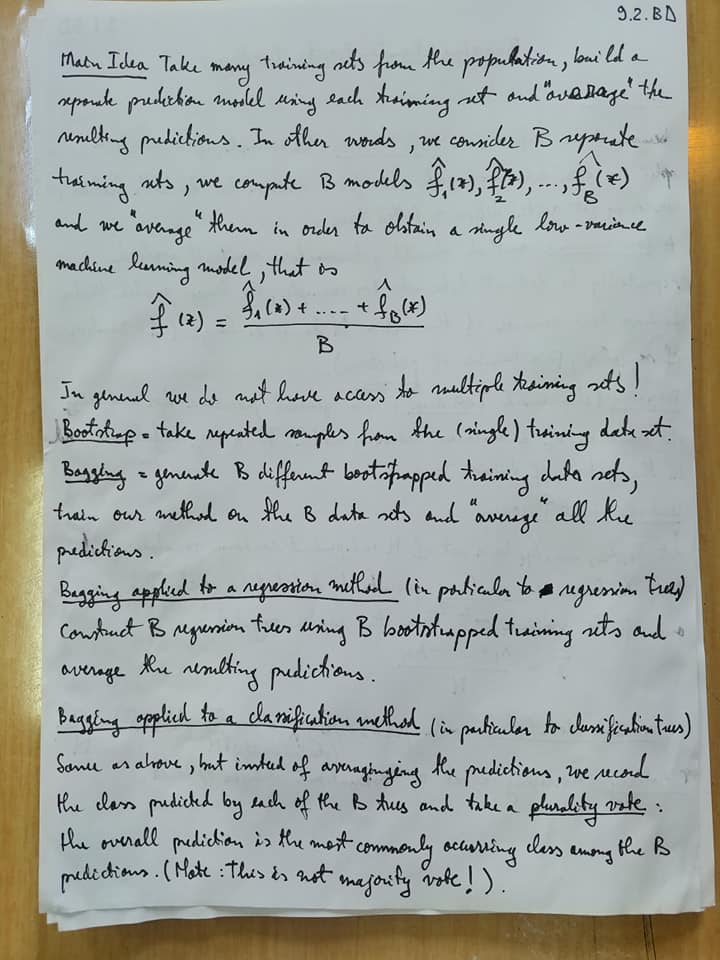 9.2.BD
Main Idea Take many training sets from the population, build a
separate prediction model using each training set and "average" the
resulting predictions. In other words, we consider B separate
training sets, we compute B models f̂₁(x), f̂₂(x), ..., f̂_B(x)
and we "average" them in order to obtain a single low-variance
machine learning model, that is
f̂(x) = (f̂₁(x) + .... + f̂_B(x)) / B
In general we do not have access to multiple training sets!
Bootstrap = take repeated samples from the (single) training data set.
Bagging = generate B different bootstrapped training data sets,
train our method on the B data sets and "average" all the
predictions.
Bagging applied to a regression method (in particular to regression trees)
Construct B regression trees using B bootstrapped training sets and
average the resulting predictions.
Bagging applied to a classification method (in particular to classification trees)
Same as above, but insted of averagingeing the predictions, we record
the class predicted by each of the B trees and take a plurality vote :
the overall prediction is the most commonly occurring class among the B
predictions. (Note : This is not majority vote!).